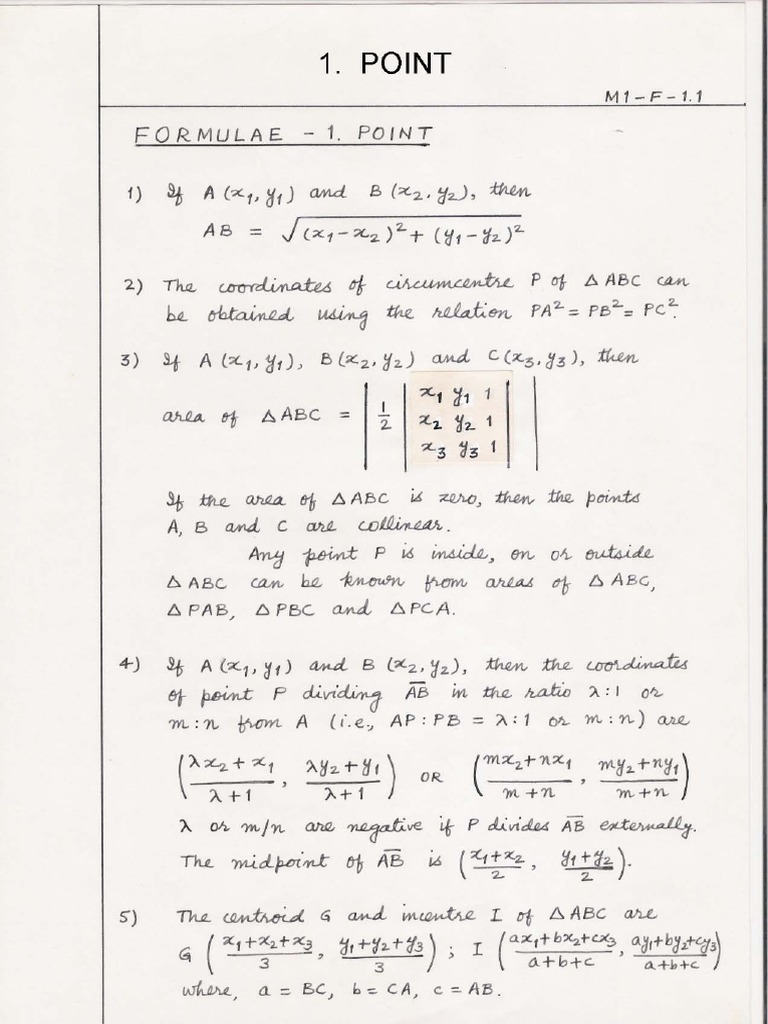 1. POINT
M1-F-1.1
FORMULAE - 1. POINT
1) If A(x₁, y₁) and B(x₂, y₂), then
AB = √(x₁-x₂)²+(y₁-y₂)²
2) The coordinates of circumcentre P of △ABC can
be obtained using the relation PA²=PB²=PC².
3) If A(x₁, y₁), B(x₂, y₂) and C(x₃, y₃), then
area of △ABC = | 1/2 | x₁ y₁ 1
x₂ y₂ 1
x₃ y₃ 1 | |
If the area of △ABC is zero, then the points
A, B and C are collinear.
Any point P is inside, on or outside
△ABC can be known from areas of △ABC,
△PAB, △PBC and △PCA.
4) If A(x₁, y₁) and B(x₂, y₂), then the coordinates
of point P dividing A̅B̅ in the ratio λ:1 or
m:n from A (i.e., AP:PB = λ:1 or m:n) are
((λx₂+x₁)/(λ+1), (λy₂+y₁)/(λ+1)) OR ((mx₂+nx₁)/(m+n), (my₂+ny₁)/(m+n))
λ or m/n are negative if P divides A̅B̅ externally.
The midpoint of A̅B̅ is ((x₁+x₂)/2, (y₁+y₂)/2).
5) The centroid G and incentre I of △ABC are
G ((x₁+x₂+x₃)/3, (y₁+y₂+y₃)/3); I ((ax₁+bx₂+cx₃)/(a+b+c), (ay₁+by₂+cy₃)/(a+b+c))
where, a = BC, b = CA, c = AB.